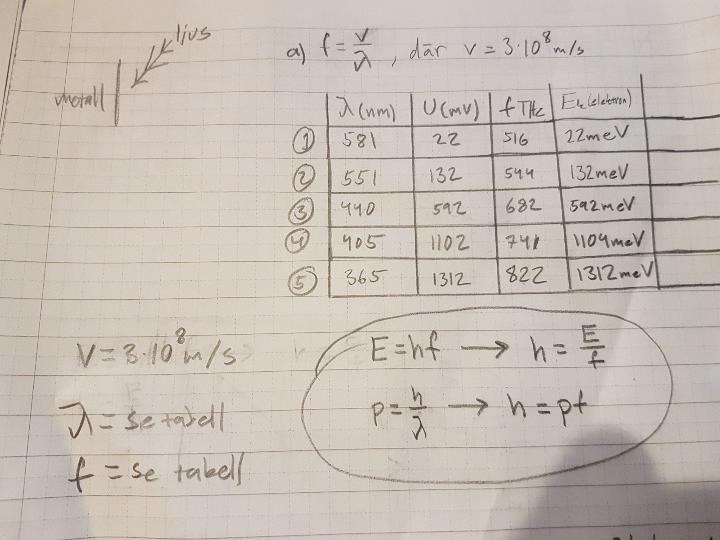 ljus
metall
a) f = v/λ, där v = 3·10⁸ m/s
λ(nm) U(mV) f THz Ek(elektron)
① 581 22 516 22meV
② 551 132 544 132meV
③ 440 592 682 592meV
④ 405 1102 741 1104meV
⑤ 365 1312 822 1312meV
V = 3·10⁸ m/s
E = hf → h = E/f
λ = se tabell
p = h/λ → h = pf
f = se tabell